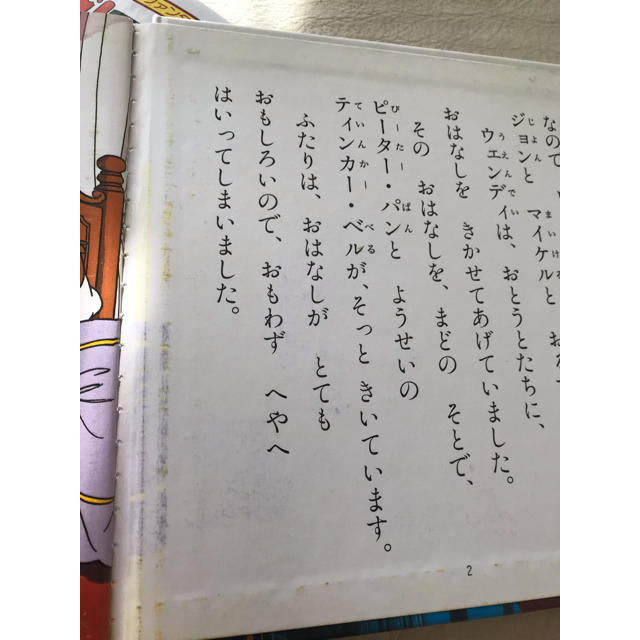 なので
ジョンと マイケルと
ウェンディは、おとうとたちに、
おはなしを きかせてあげていました。
その おはなしを、まどの そとで、
ピーター・パンと ようせいの
ティンカー・ベルが、そっと きいています。
ふたりは、おはなしが とても
おもしろいので、おもわず へやへ
はいってしまいました。
2